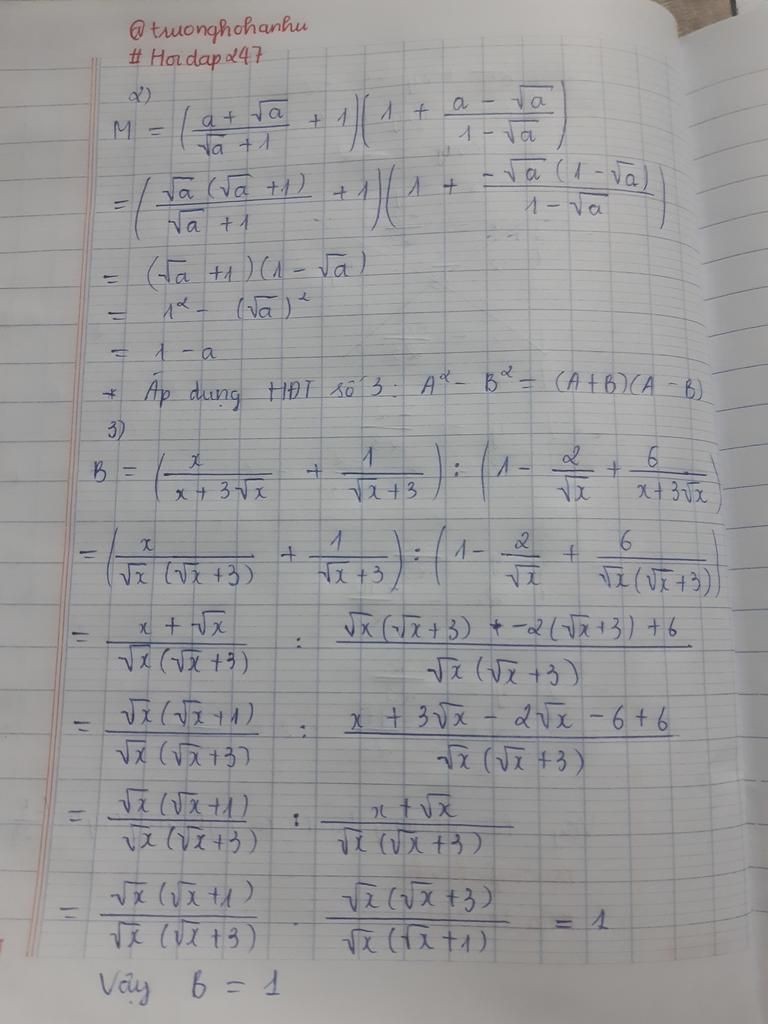 @truonghohanhu
# Hoidap247
2)
M = ( (a + √a)/(√a + 1) + 1 )( 1 + (a - √a)/(1 - √a) )
= ( (√a (√a + 1))/(√a + 1) + 1 )( 1 + (-√a (1 - √a))/(1 - √a) )
= (√a + 1)(1 - √a)
= 1² - (√a)²
= 1 - a
* Áp dụng HĐT số 3: A² - B² = (A + B)(A - B)
3)
B = ( x/(x + 3√x) + 1/(√x + 3) ) : ( 1 - 2/√x + 6/(x + 3√x) )
= ( x/(√x (√x + 3)) + 1/(√x + 3) ) : ( 1 - 2/√x + 6/(√x (√x + 3)) )
= (x + √x)/(√x (√x + 3)) : (√x (√x + 3) + -2(√x + 3) + 6)/(√x (√x + 3))
= (√x (√x + 1))/(√x (√x + 3)) : (x + 3√x - 2√x - 6 + 6)/(√x (√x + 3))
= (√x (√x + 1))/(√x (√x + 3)) : (x + √x)/(√x (√x + 3))
= (√x (√x + 1))/(√x (√x + 3)) . (√x (√x + 3))/(√x (√x + 1)) = 1
Vậy B = 1